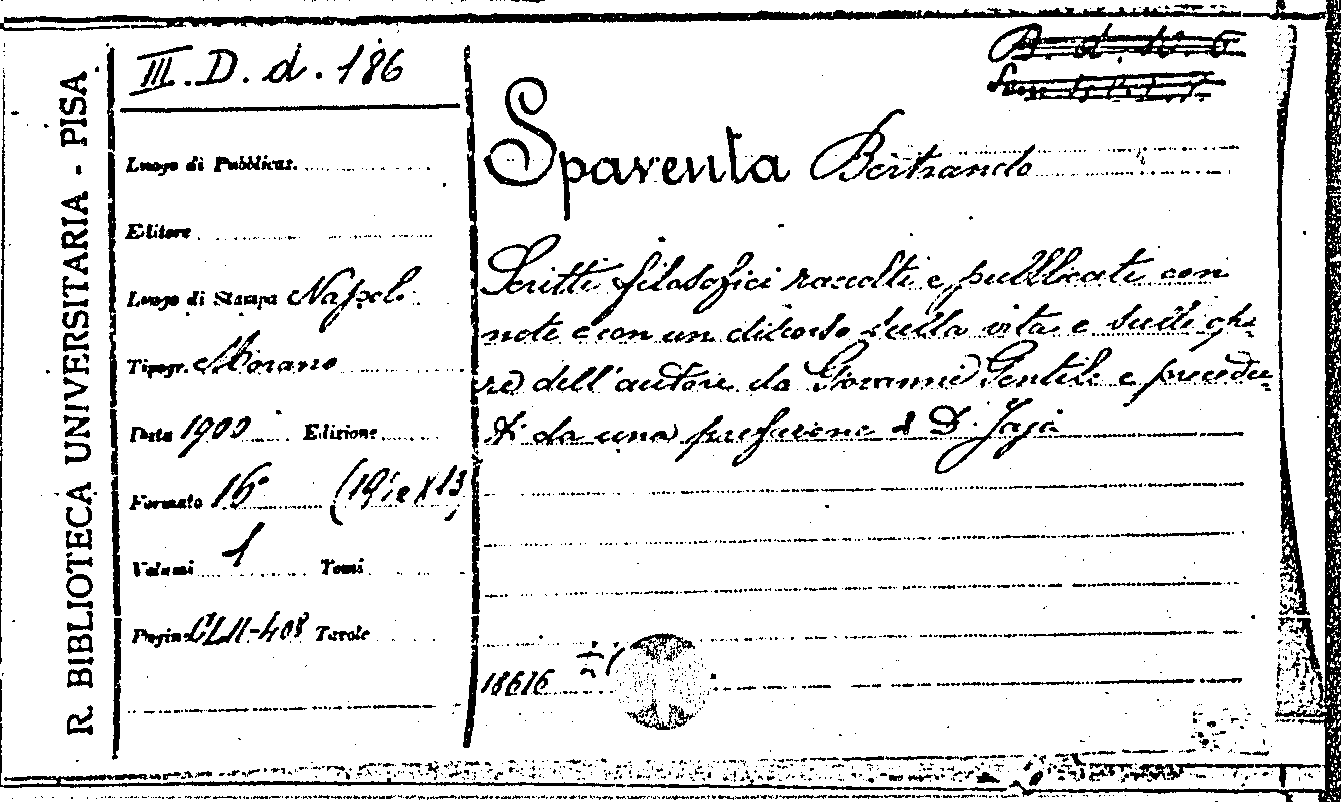 R. BIBLIOTECA UNIVERSITARIA - PISA
III. D. d. 186
Luogo di Pubblicaz.
Editore
Luogo di Stampa Napoli
Tipogr. Morano
Data 1900 Edizione
Formato 16°
Volumi 1 Tomi
Pagine CLII-408 Tavole
Spaventa Bertrando
Scritti filosofici raccolti e pubblicati con
note e con un discorso sulla vita e sulle ope-
re dell'autore da Giovanni Gentile e precedu-
ti da una prefazione d D. Jaja
18616